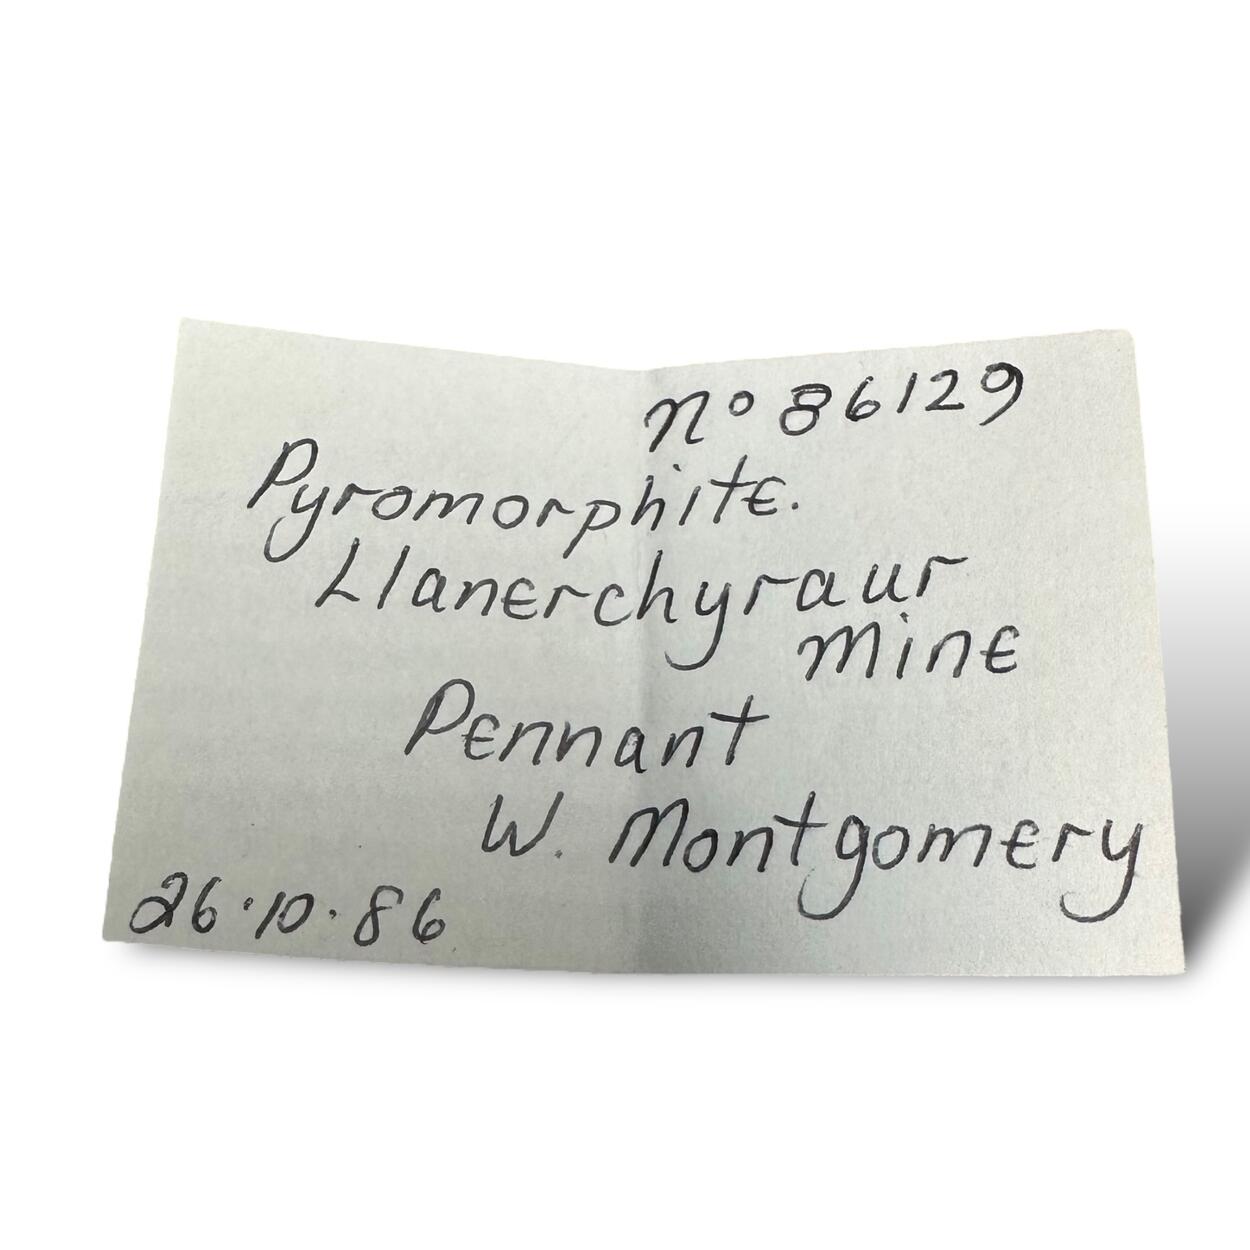 no 86129
Pyromorphite.
Llanerchyraur
mine
Pennant
W. Montgomery
26.10.86